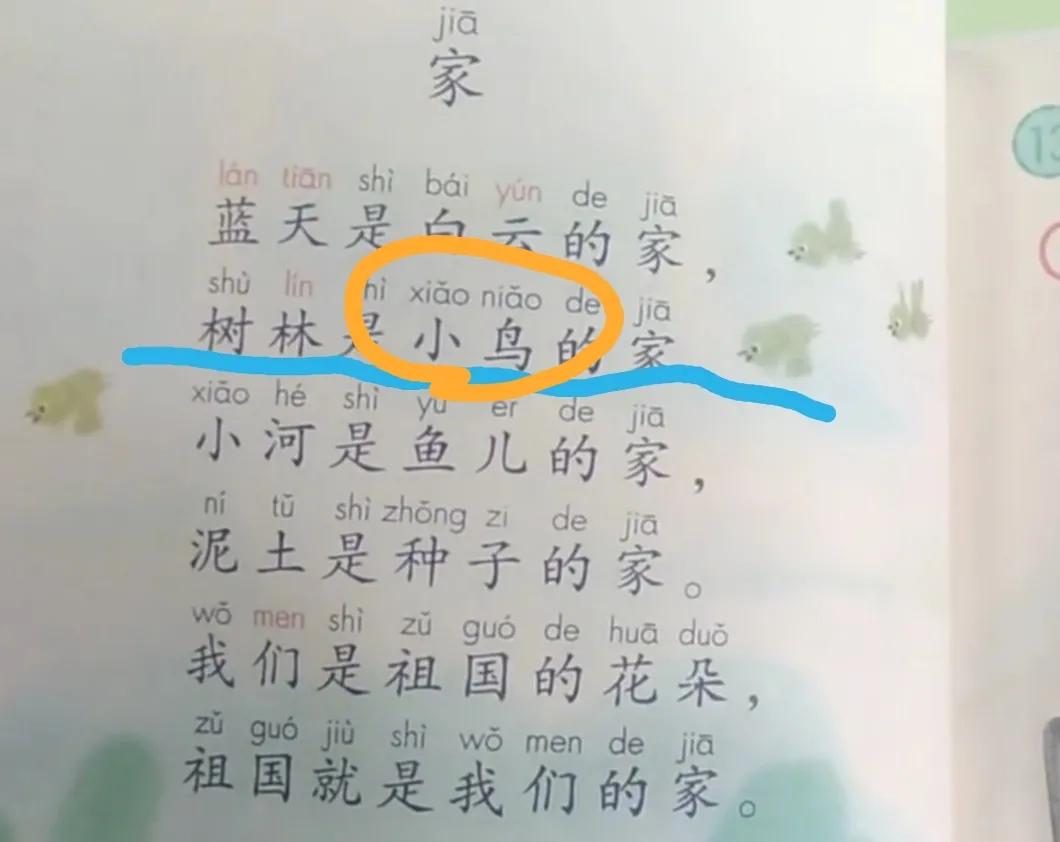 jiā
家
lán tiān shì bái yún de jiā
蓝天是白云的家，
shù lín shì xiǎo niǎo de jiā
树林是小鸟的家
xiǎo hé shì yú ér de jiā
小河是鱼儿的家，
ní tǔ shì zhǒng zi de jiā
泥土是种子的家。
wǒ men shì zǔ guó de huā duǒ
我们是祖国的花朵，
zǔ guó jiù shì wǒ men de jiā
祖国就是我们的家。
13